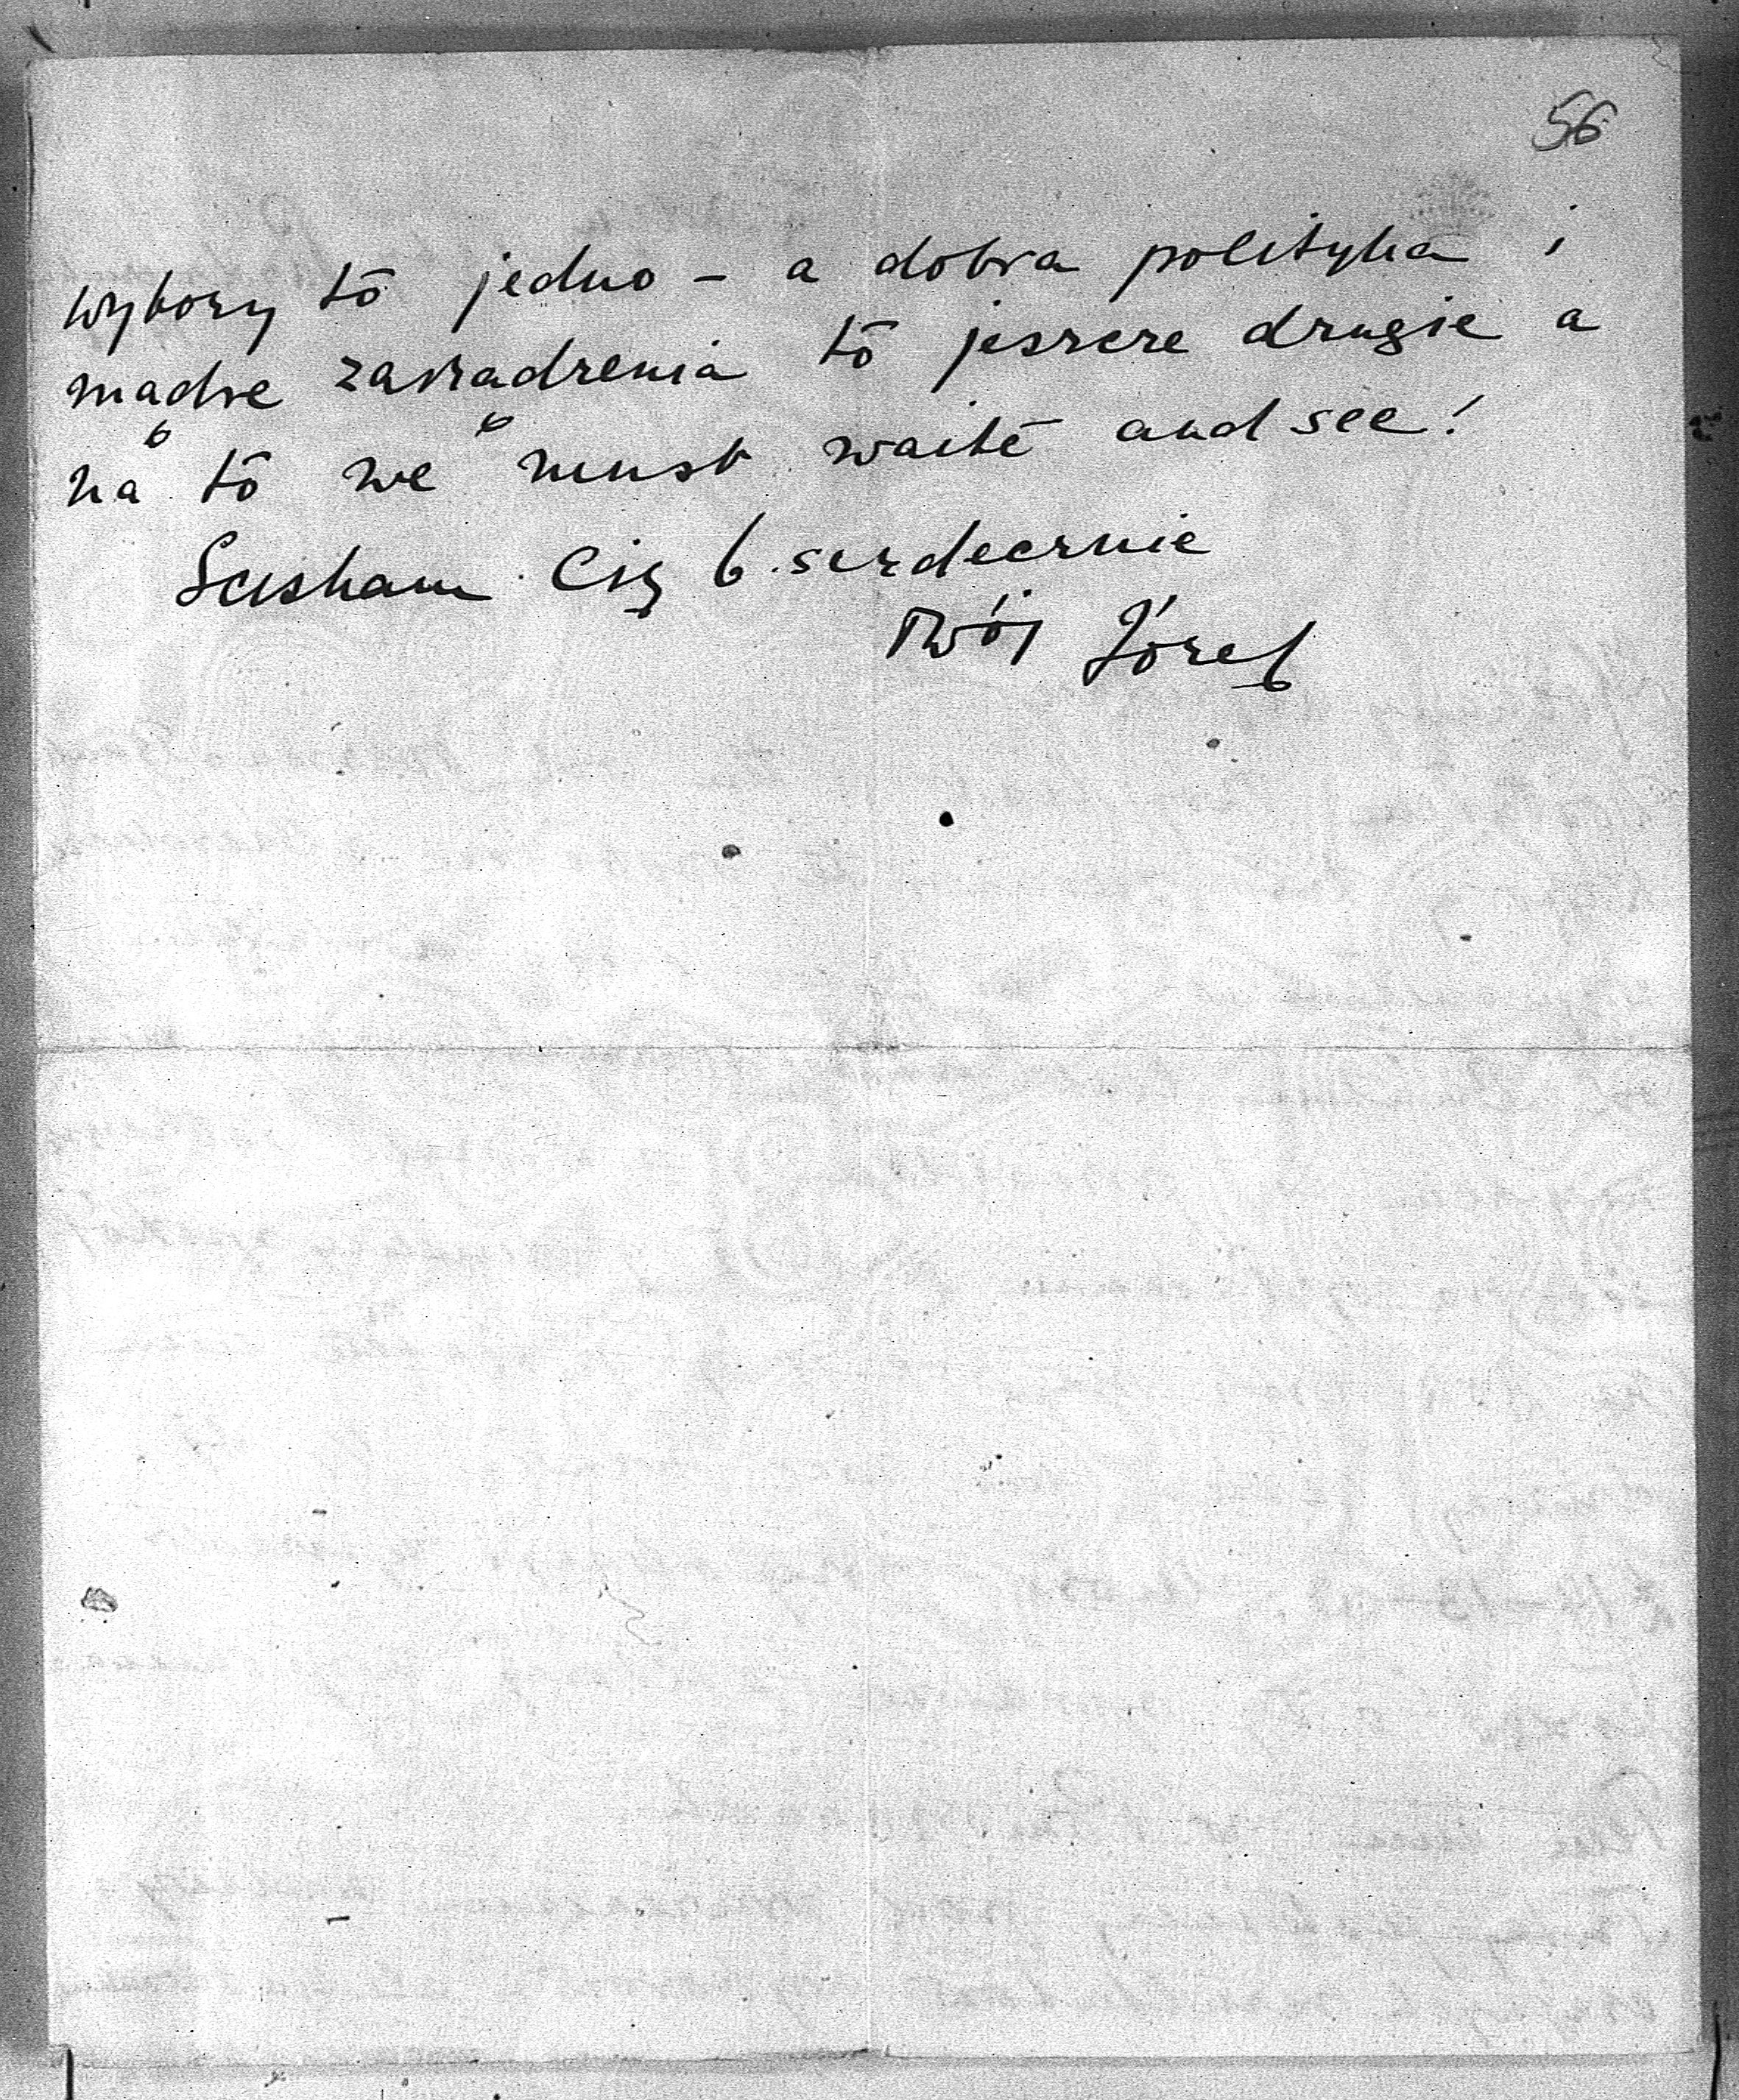 56
wybory to jedno – a dobra polityka i
mądre zarządzenia to jeszcze drugie a
na to we must waite and see!
Sciskam Cię b. serdecznie
Twój Józef